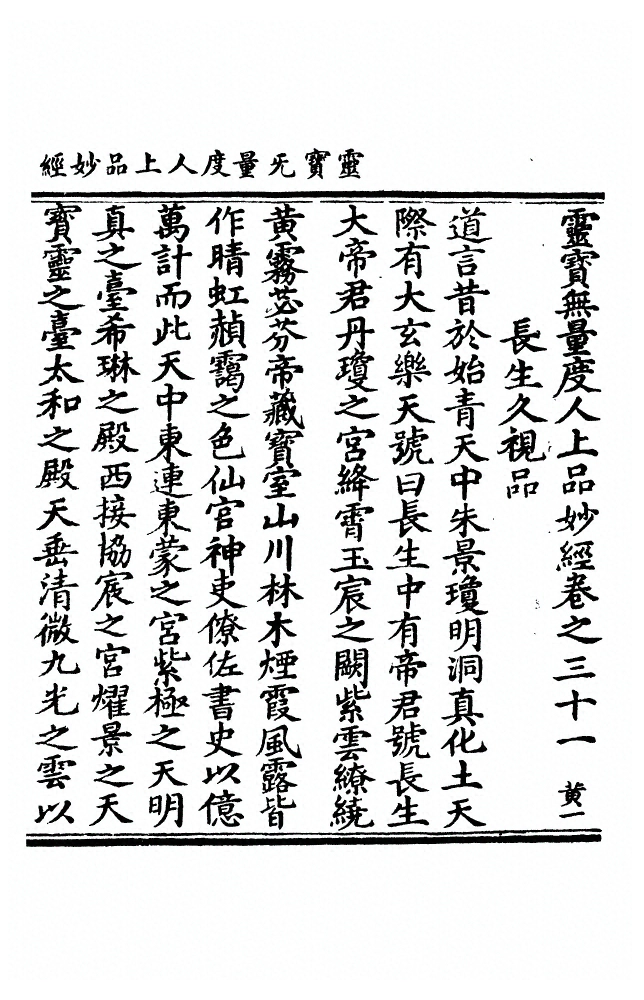 靈寶无量度人上品妙經
靈寶無量度人上品妙經卷之三十一 黃一
長生久視品
道言昔於始青天中朱景瓊明洞真化土天
際有大玄樂天號曰長生中有帝君號長生
大帝君丹瓊之宮絳霄玉宸之闕紫雲繚繞
黃霧苾芬帝藏寶室山川林木煙霞風露皆
作晴虹赬靄之色仙官神吏僚佐書史以億
萬計而此天中東連東蒙之宮紫極之天明
真之臺希琳之殿西接協宸之宮耀景之天
寶靈之臺太和之殿天垂清微九光之雲以